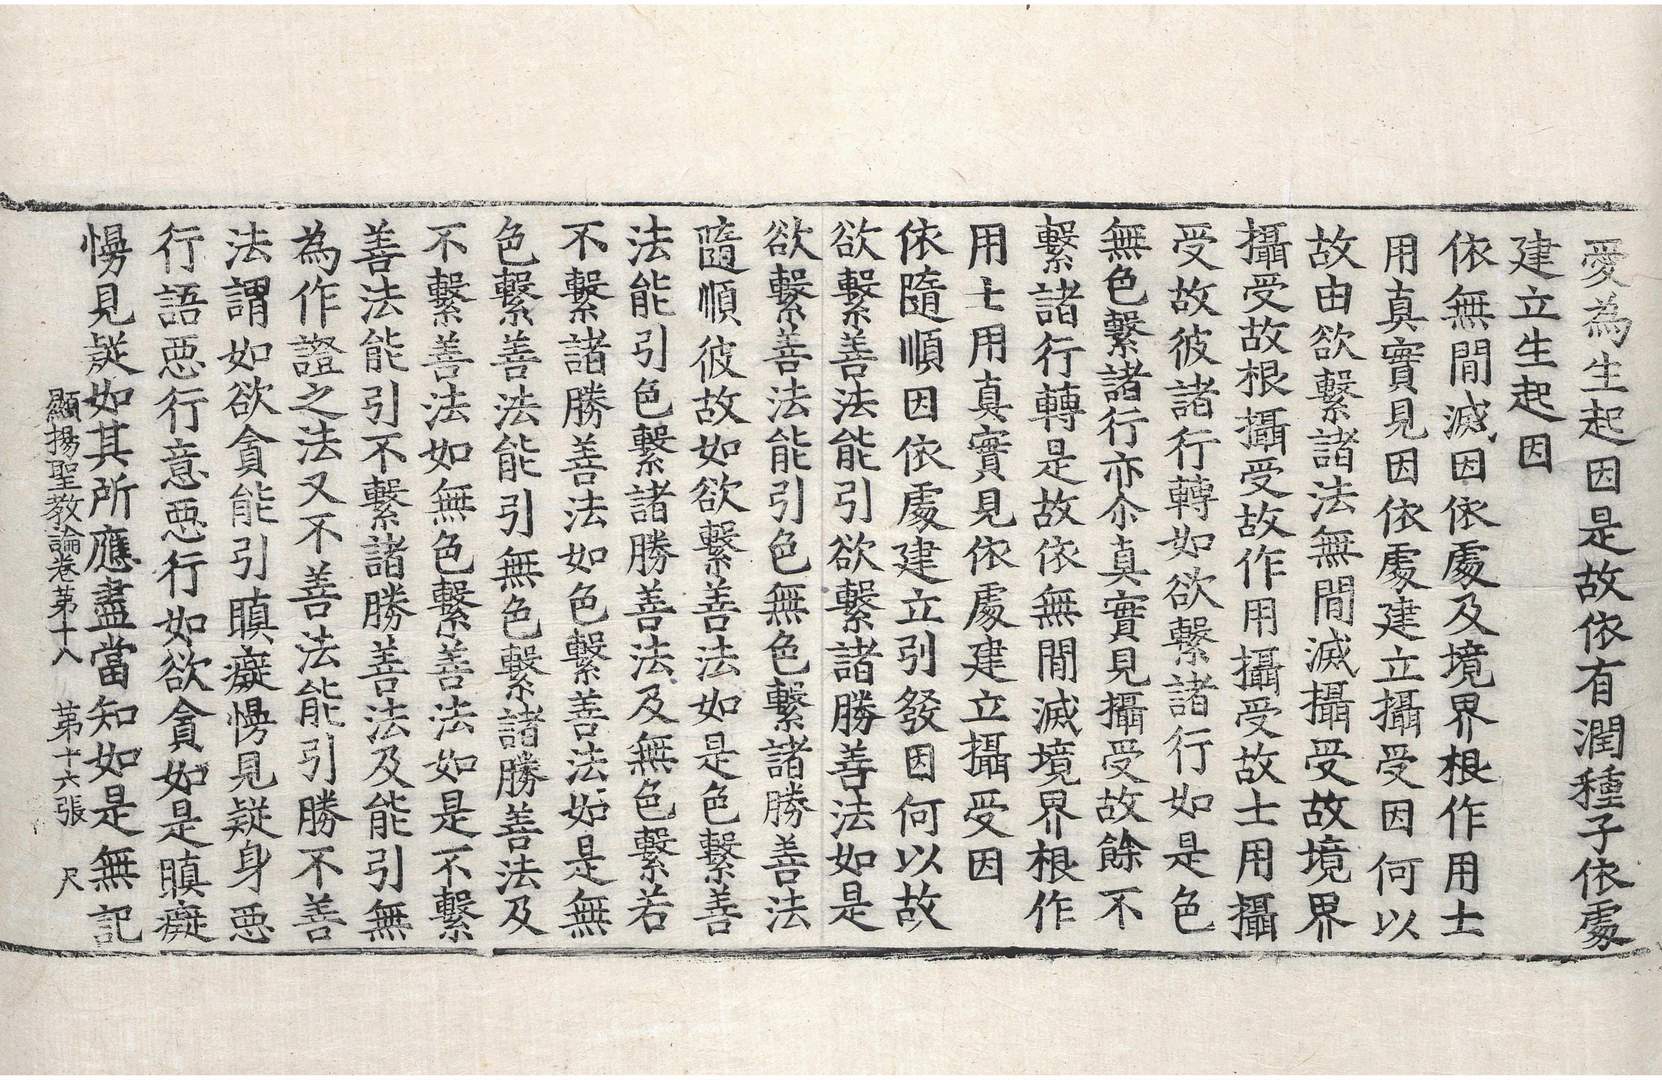 愛為生起因是故依有潤種子依處
建立生起因
依無間滅因依處及境界根作用士
用真實見因依處建立攝受因何以
故由欲繫諸法無間滅攝受故境界
攝受故根攝受故作用攝受故士用攝
受故彼諸行轉如欲繫諸行如是色
無色繫諸行亦尒真實見攝受故餘不
繫諸行轉是故依無間滅境界根作
用士用真實見依處建立攝受因
依隨順因依處建立引發因何以故
欲繫善法能引欲繫諸勝善法如是
欲繫善法能引色無色繫諸勝善法
隨順彼故如欲繫善法如是色繫善
法能引色繫諸勝善法及無色繫若
不繫諸勝善法如色繫善法如是無
色繫善法能引無色繫諸勝善法及
不繫善法如無色繫善法如是不繫
善法能引不繫諸勝善法及能引無
為作證之法又不善法能引勝不善
法謂如欲貪能引瞋癡慢見疑身悪
行語悪行意悪行如欲貪如是瞋癡
慢見疑如其所應盡當知如是無記
顯揚聖教論卷第十八 第十六張 尺